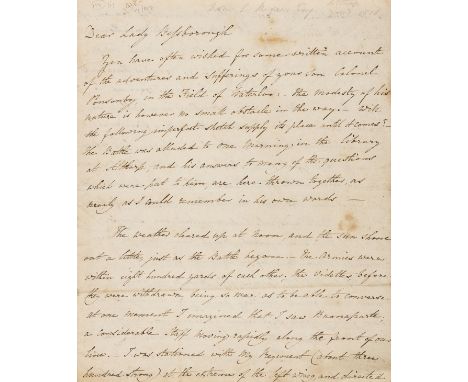 Dear Lady Bessborough
You have often wished for some written account
of the adventures and sufferings of your son Colonel
Ponsonby in the Field of Waterloo. The modesty of his
nature is however no small obstacle in the way – Will
the following imperfect sketch supply its place until it comes? –
the Battle was alluded to one morning in the Library
at Althorp, and his answers to many of the questions
which were put to him are here thrown together, as
nearly as I could remember in his own words –
The weather cleared up at noon, and the sun shone
out a little just as the Battle began – The Armies were
within eight hundred yards of each other, the videttes before
they were withdrawn being so near as to be able to converse
at one moment I imagined that I saw Buonaparte,
a considerable Staff moving rapidly along the front of our
line. I was stationed with My Regiment (about three
hundred strong) at the extreme of the left wing, and directed